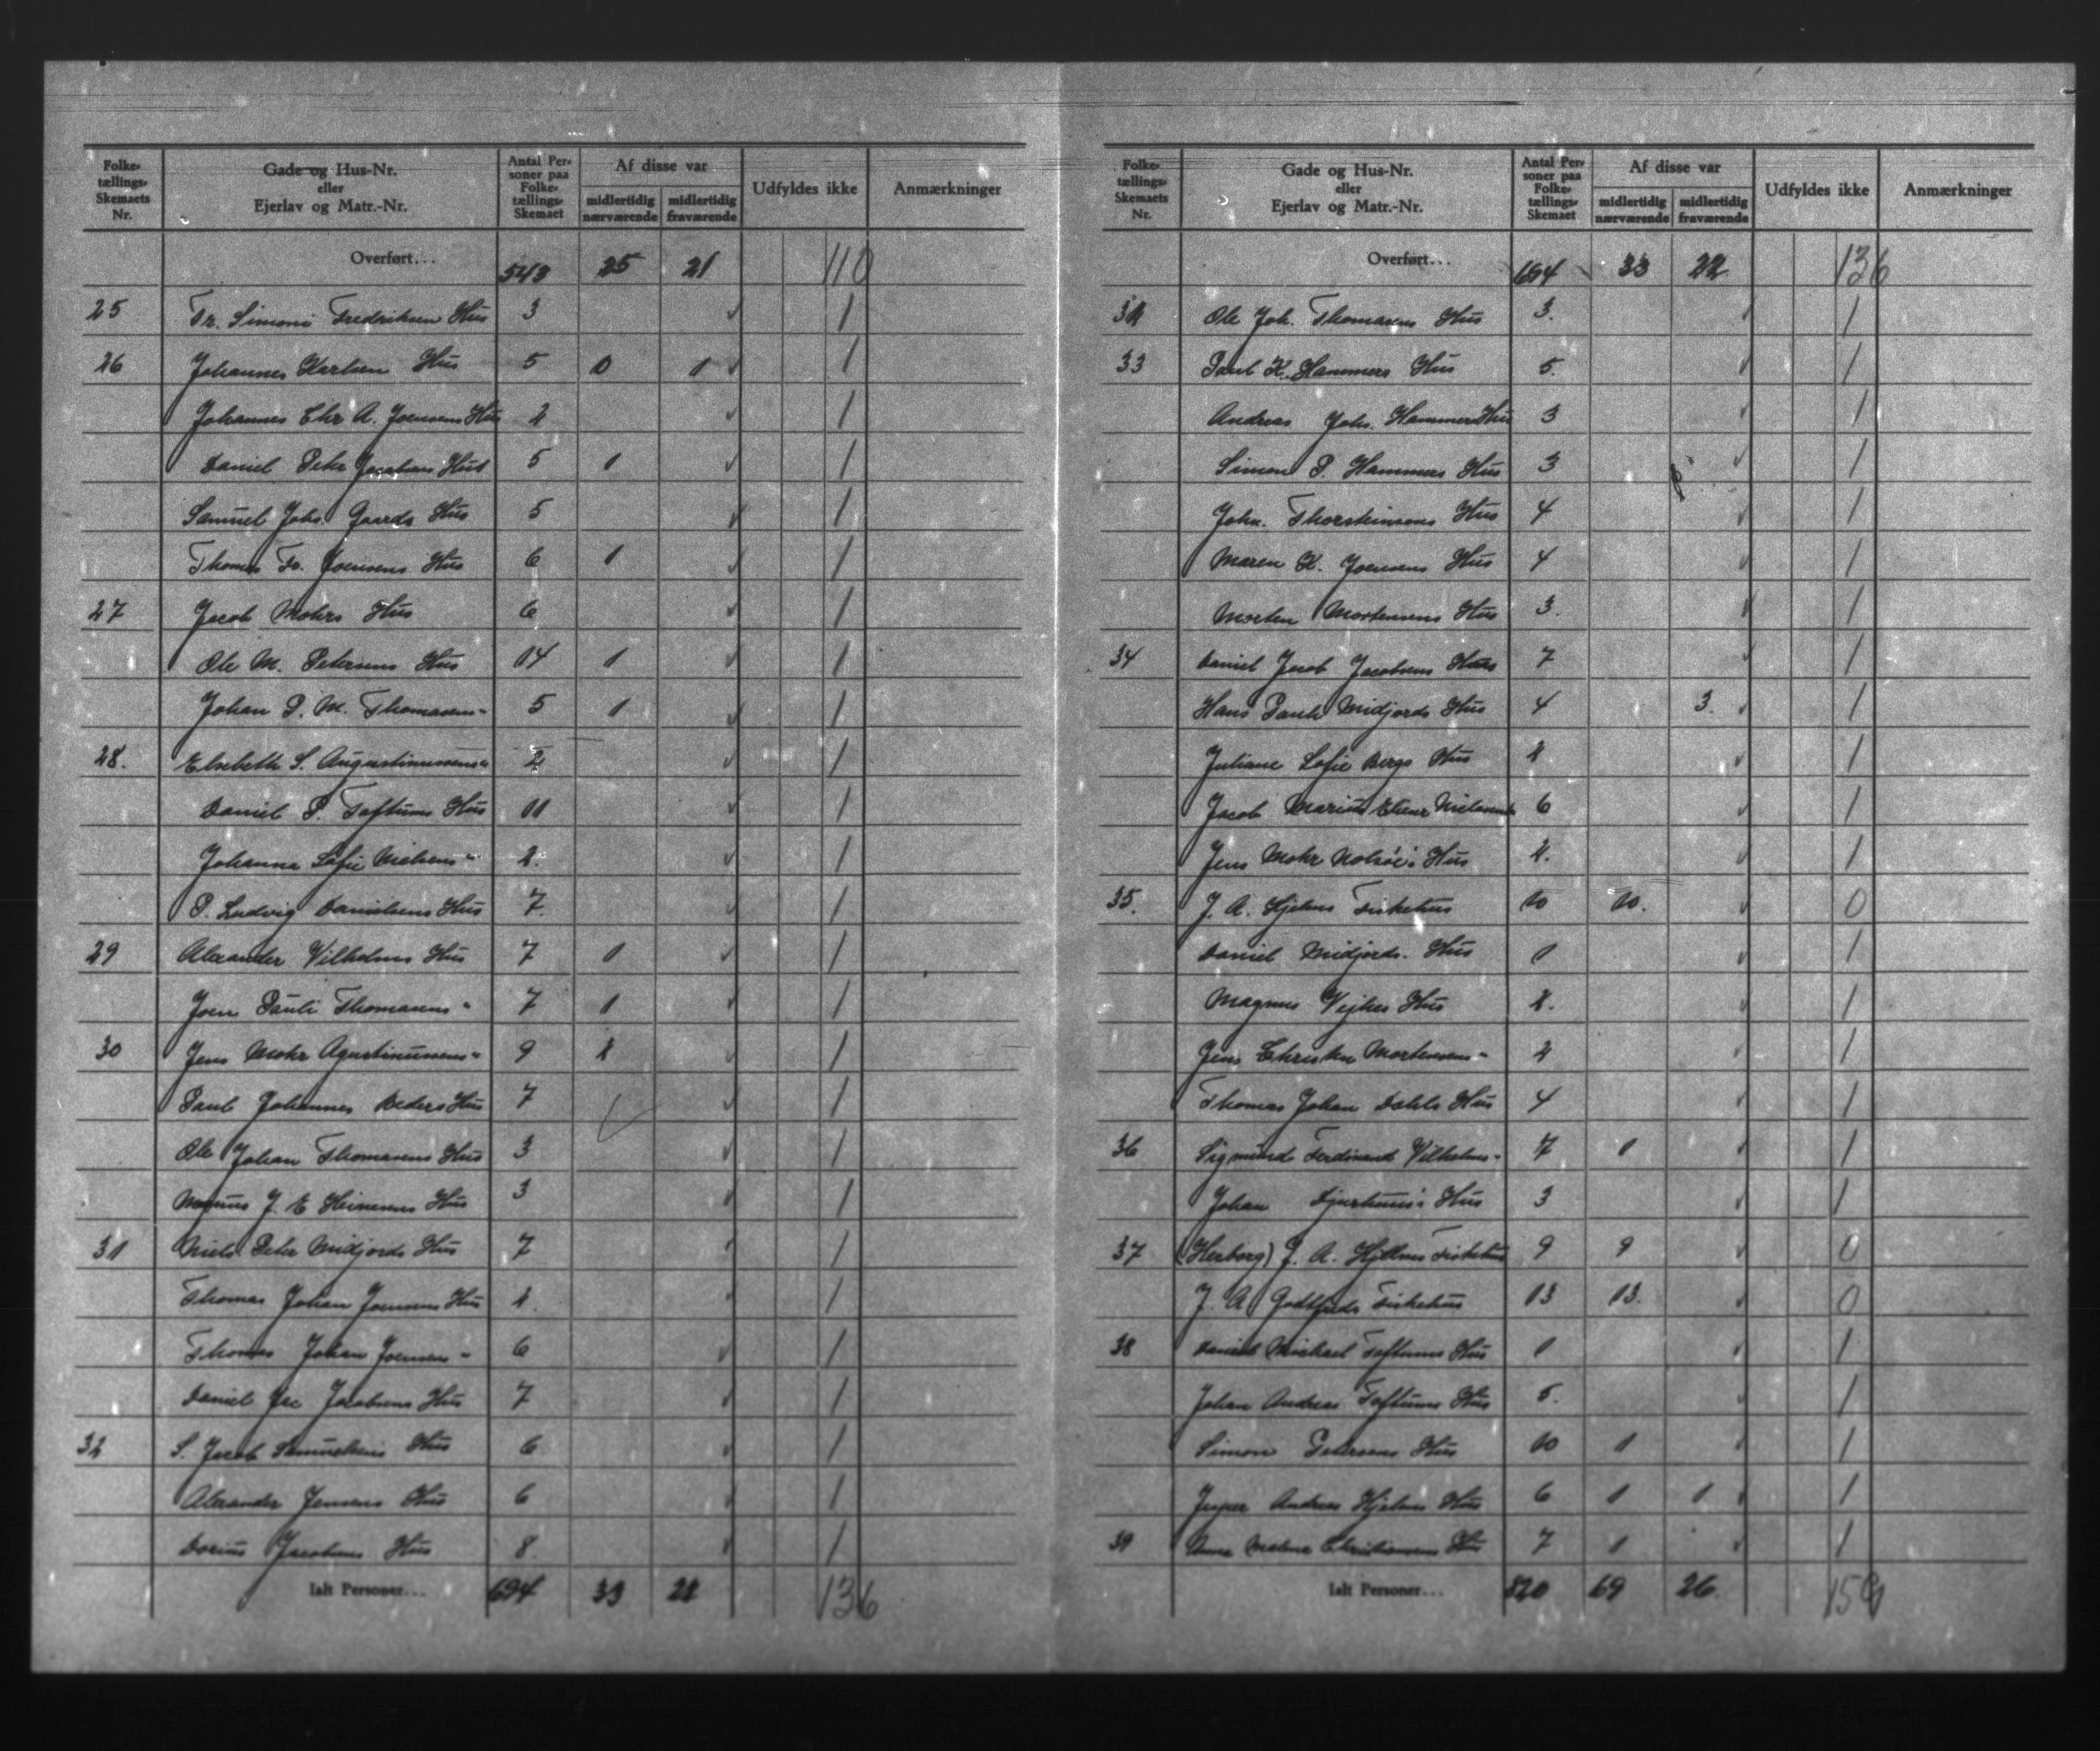 Folke-tællings-Skemaets Nr. | Gade og Hus-Nr. eller Ejerlav og Matr.-Nr. | Antal Personer paa Folke-tællings-Skemaet | Af disse var midlertidig nærværende | midlertidig fraværende | Udfyldes ikke | Anmærkninger
Overført... 543 25 21 110
25 Fr. Simoni Fredriksen Hus 3 1
26 Johannes Karlsen Hus 5 0 1 1
Johannes Chr A. Joensens Hus 2 1
Daniel Peter Jacobsens Hus 5 1 1
Samuel Johs. Gaards Hus 5 1
Thomas Fr. Joensens Hus 6 1 1
27 Jacob Mohrs Hus 6 1
Ole M. Petersens Hus 14 1 1
Johan P. M. Thomasens " 5 1 1
28. Elsebeth S. Augustinussens " 2 1
Daniel P. Toftums Hus 11 1
Johanna Sofie Nielsens " 2. 1
P. Ludvig Danielsens Hus 7. 1
29 Alexander Vilhelms Hus 7 1 1
Joen Pauli Thomasens " 7 1 1
30 Jens Mohr Agustinussens " 9 2 1
Paul Johannes Beders Hus 7 1
Ole Johan Thomasens Hus 3 1
Magnus J. E Heinesens Hus 3 1
31 Niels Peter Midjords Hus 7 1
Thomas Johan Joensens Hus 2. 1
Thomas Johan Joensens " 6 1
Daniel Jac Jacobsens Hus 7 1
32 S. Jacob Samuelsens Hus 6 1
Alexander Jensens Hus 6 1
Dorius Jacobsens Hus 8. 1
Ialt Personer... 694 33 22 136
Folke-tællings-Skemaets Nr. | Gade og Hus-Nr. eller Ejerlav og Matr.-Nr. | Antal Personer paa Folke-tællings-Skemaet | Af disse var midlertidig nærværende | midlertidig fraværende | Udfyldes ikke | Anmærkninger
Overført... 694 33 22 136
32 Ole Joh. Thomasens Hus 3. 1
33 Paul K. Hammers Hus 5. 1
Andreas Johs. Hammers Hus 3 1
Simon P. Hammers Hus 3 1
John. Thorsteinsons Hus 4 1
Maren K. Joensens Hus 4 1
Morten Mortensens Hus 3. 1
34 Daniel Jacob Jacobsens Hus 7 1
Hans Pauli Midjords Hus 4 3. 1
Juliane Sofie Bergs Hus 2 1
Jacob Marius Elienr Nielsens 6 1
Jens Mohr Nolsöe's Hus 2. 1
35. J. A. Hjelms Fiskehus 10 10. 0
Daniel Midjords. Hus 1 1
Magnus Vejhes Hus 2. 1
Jens Christen Mortensens " 2 1
Thomas Johan Dahls Hus 4 1
36 Sigmund Ferdinand Vilhelms " 7 1 1
Johan Djurhuus's Hus 3 1
37 (Herborg) J. A. Hjelms Fiskehus 9 9 0
J. A. Godtfreds Fiskehus 13 13. 0
38 Daniel Michael Toftums Hus 1 1
Johan Andreas Toftums Hus 5. 1
Simon Petersens Hus 10 1 1
Jesper Andreas Hjelms Hus 6 1 1 1
39 Anna Malena Christiansens Hus 7 1 1
Ialt Personer... 820 69 26. 159